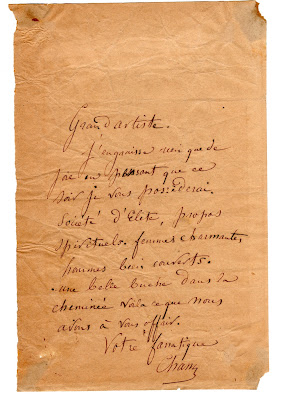 Grand artiste.
J'engraisse rien que de
joie en pensant que ce
soir je vous possèderai.
Société d'Elite, propos
spirituels. femmes charmantes
hommes bien couverts.
une belle buche dans la
cheminée voilà ce que nous
avons à vous offrir.
Votre fanatique
Cham